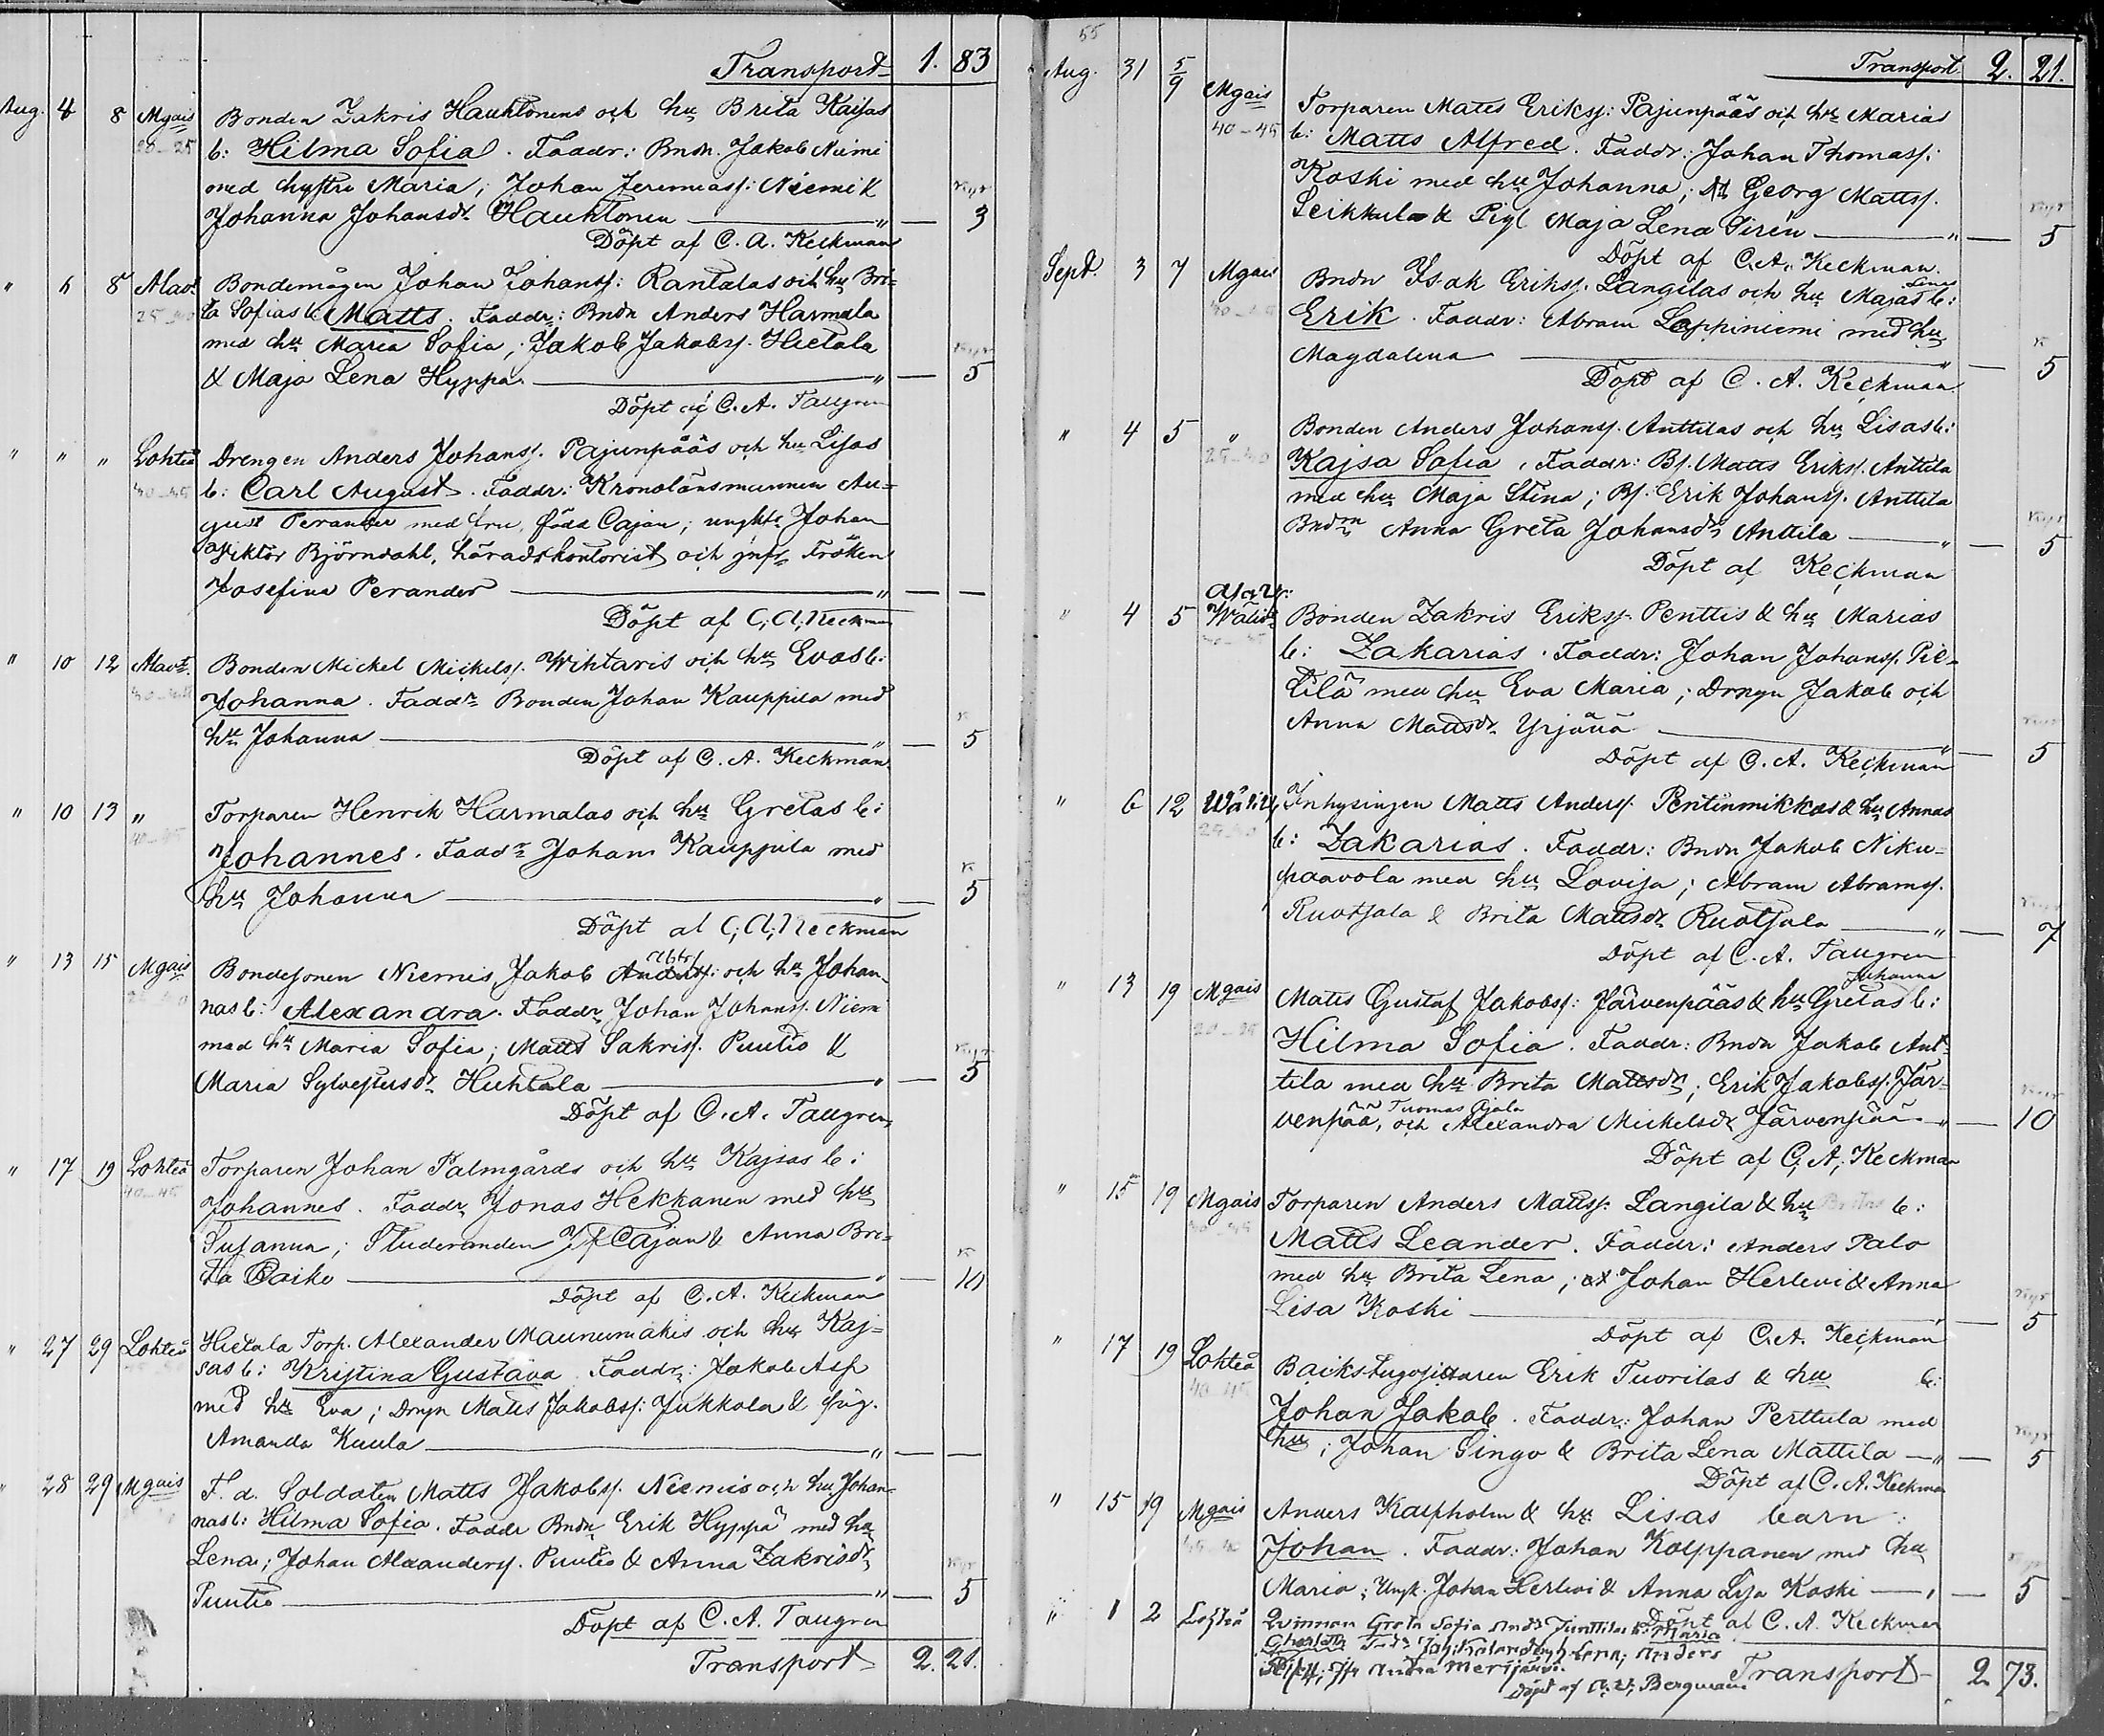 Transport 1. 83
Aug. 4 8 Mgais Bonden Zakris Hauktonens och hu Brita Kaisas
28-25 b: Hilma Sofia. Faddr: Bndn. Jakob Niemi
med hustru Maria; Johan Jeremiass: Niemi &
Johanna Johansdr Hauktonen " — 3
Döpt af C. A. Keckman
" 6 8 Alav. Bondemågen Johan Johanss: Rantalas och hu Bri-
ta Sofias b. Matts. Faddr: Bndn Anders Harmala
med hu Maria Sofia; Jakob Jakobs. Hietala
& Maja Lena Hyppa " — 5
Döpt af C. A. Taugren
" " " Lohteå Drengen Anders Johanss. Pajunpääs och hu Lisas
40-45 b: Carl August. Faddr: Kronolänsmannen Au-
gust Perander med fru, född Cajan; ungkr Johan
Viktor Björndahl, häradskontorist och jnfr Fröken
Josefina Perander " — —
Döpt af C. A. Keckman
" 10 12 Alavt. Bonden Mickel Mickelss. Wihtaris och hu Evas b:
Johanna. Faddr Bonden Johan Kauppila med
hu Johanna " — 5
Döpt af C. A. Keckman
" 10 13 " Torparen Henrik Harmalas och hu Gretas b:
40-45 Johannes. Faddr Johan Kauppila med
hu Johanna " — 5
Döpt af C. A. Keckman
" 13 15 Mgais Bondesonen Niemis Jakob och hu Johan-
nas b: Alexandra. Faddr Johan Johanss. Niemi
med hu Maria Sofia; Matts Sakriss. Puutio &
Maria Sylvestersdr Huhtala " — 5
Döpt af C. A. Taugren
" 17 19 Lohteå Torparen Johan Palmgårds och hu Kajsas b:
40-45 Johannes. Faddr Jonas Hekkanen med hu
Susanna; Studeranden Cajan & Anna Bri-
ta Raiko " — 10
Döpt af C. A. Keckman
" 27 29 Lohteå Hietala Torp. Alexander Maunumäkis och hu Kaj-
sas b: Kristina Gustava. Faddr: Jakob Asp
med hu Eva; Drngn Matts Jakobss: Jukkola & pig.
Amanda Kuula " — —
" 28 29 Mgais F. d. Soldaten Matts Jakobss. Niemis och hu Johan-
nas b: Hilma Sofia. Faddr Bndn Erik Hyppä med hu
Lena; Johan Alexanders. Puutio & Anna Zakrisdr
Puutio " — 5
Döpt af C. A. Taugren
Transport 2. 21.
55
Transport 2. 21.
Aug. 31 5/9 Mgais Torparen Matts Erikss: Pajunpääs och hu Marias
40-45 b: Matts Alfred. Faddr: Johan Thomass:
Koski med hu Johanna; Georg Mattss.
Leikkula & Pig. Maja Lena Sirén " — 5
Döpt af C. A. Keckman.
Sept. 3 7 Mgais Bndn Isak Erikss. Langilas och hu Majas Lena b:
Erik. Faddr: Abram Lappiniemi med hu
Magdalena " — 5
Döpt af C. A. Keckman
" 4 5 " Bonden Anders Johanss. Anttilas och hu Lisas b:
Kajsa Sofia. Faddr: Bs. Matts Erikss. Anttila
med hu Maja Stina; Bs. Erik Johanss. Anttila
Bndm Anna Greta Johansdr Anttila " — 5
Döpt af Keckman
" 4 5 Wälivk Bonden Zakris Erikss. Penttis & hu Marias
b: Zakarias. Faddr: Johan Johanss. Pie-
tilä med hu Eva Maria; Drngn Jakob och
Anna Mattsdr Yrjänä " — 5
Döpt af C. A. Keckman
" 6 12 Wäliv. Inhysingen Matts Anderss. Pentinmikkas & hu Annas
b: Zakarias. Faddr: Bndn Jakob Niku-
paavola med hu Lovisa; Abram Abrams.
Ruotsala & Brita Mattsdr Ruotsala " — 7
Döpt af C. A. Taugren
" 13 19 Mgais Matts Gustaf Jakobss: Järvenpääs & hu Gretas Johanna b:
20-25 Hilma Sofia. Faddr: Bndn Jakob Ant-
tila med hu Brita Mattsdr; Erik Jakobss. Jär-
venpää, och Alexandra Mickelsdr Järvenpää " — 10
Döpt af C. A. Keckman
" 15 19 Mgais Torparen Anders Mattss: Langila & hu Britas b:
Matts Leander. Faddr: Anders Palo
med hu Brita Lena; Johan Herlevi & Anna
Lisa Koski — 5
Döpt af C. A. Keckman
" 17 19 Lohteå Backstugosittaren Erik Tuorilas & hu b:
Johan Jakob. Faddr: Johan Perttula med
hu; Johan Singo & Brita Lena Mattila " — 5
Döpt af C. A. Keckman
" 15 19 Mgais Anders Kalpholm & hu Lisas barn:
Johan. Faddr: Johan Kolppanen med hu
Maria; Ungk. Johan Herlevi & Anna Lisa Koski — 5
Döpt af C. A. Keckman
" 1 2 Lohteå Qvinnan Greta Sofia Junttilas b: Maria
Lena; Anders
Merijärvi.
Döpt af Bergman
Transport 2 73.